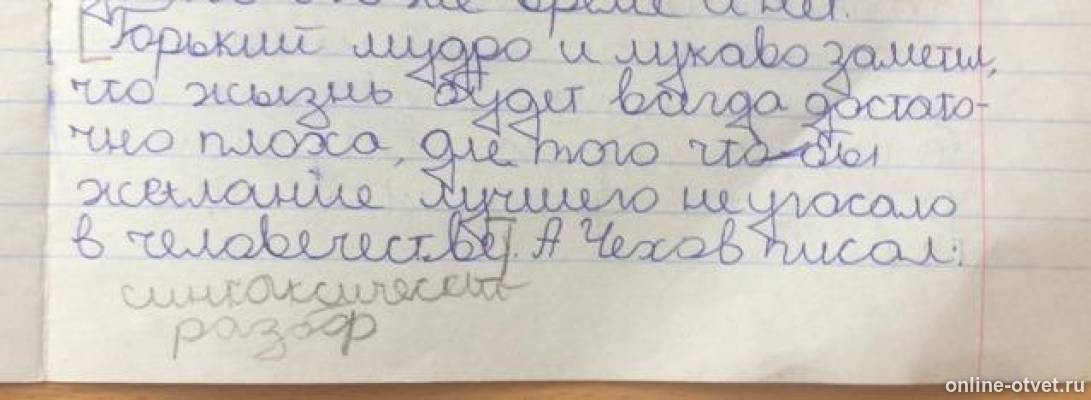 же время и нет.
[Горький мудро и лукаво заметил,
что жызнь будет всегда достато-
чно плоха, для того что бы
желание лучшего не угасало
в человечестве]. А Чехов писал:
синтаксический
разбор
online-otvet.ru